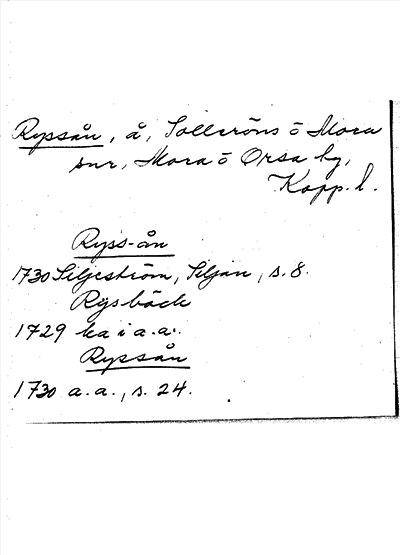 Ryssån, å, Solleröns ö Mora
snr, Mora ö Orsa tg,
Kopp. l.
Ryss-ån
1730 Siljeström, Siljan, s. 8.
Rysbäck
1729 ka i a.a.
Ryssån
1730 a.a., s. 24.